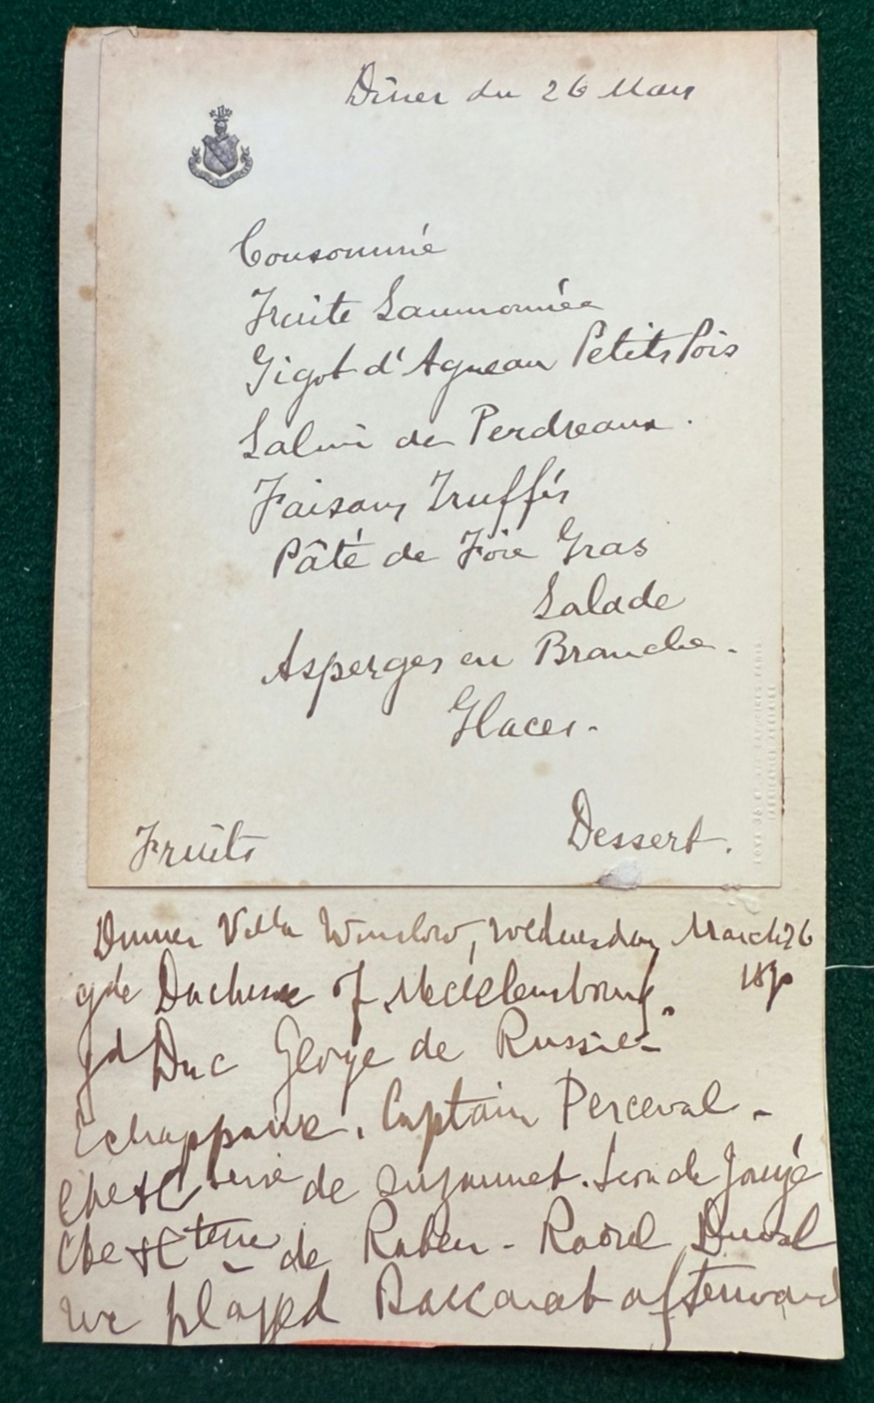 Dîner du 26 Mars
Consommé
Truite Saumonée
Gigot d'Agneau Petits Pois
Salmi de Perdreaux.
Faisans Truffés
Pâté de Foie Gras
Salade
Asperges en Branche.
Glaces.
Fruits
Dessert.
Dinner Villa Winslow, Wednesday March 26
gde Duchesse of Mecklembourg.
gd Duc George de Russie
Captain Perceval
de Suzannet. Léon de
Cte & Ctesse de Raben - Raoul Duval
we played Baccarat afterward